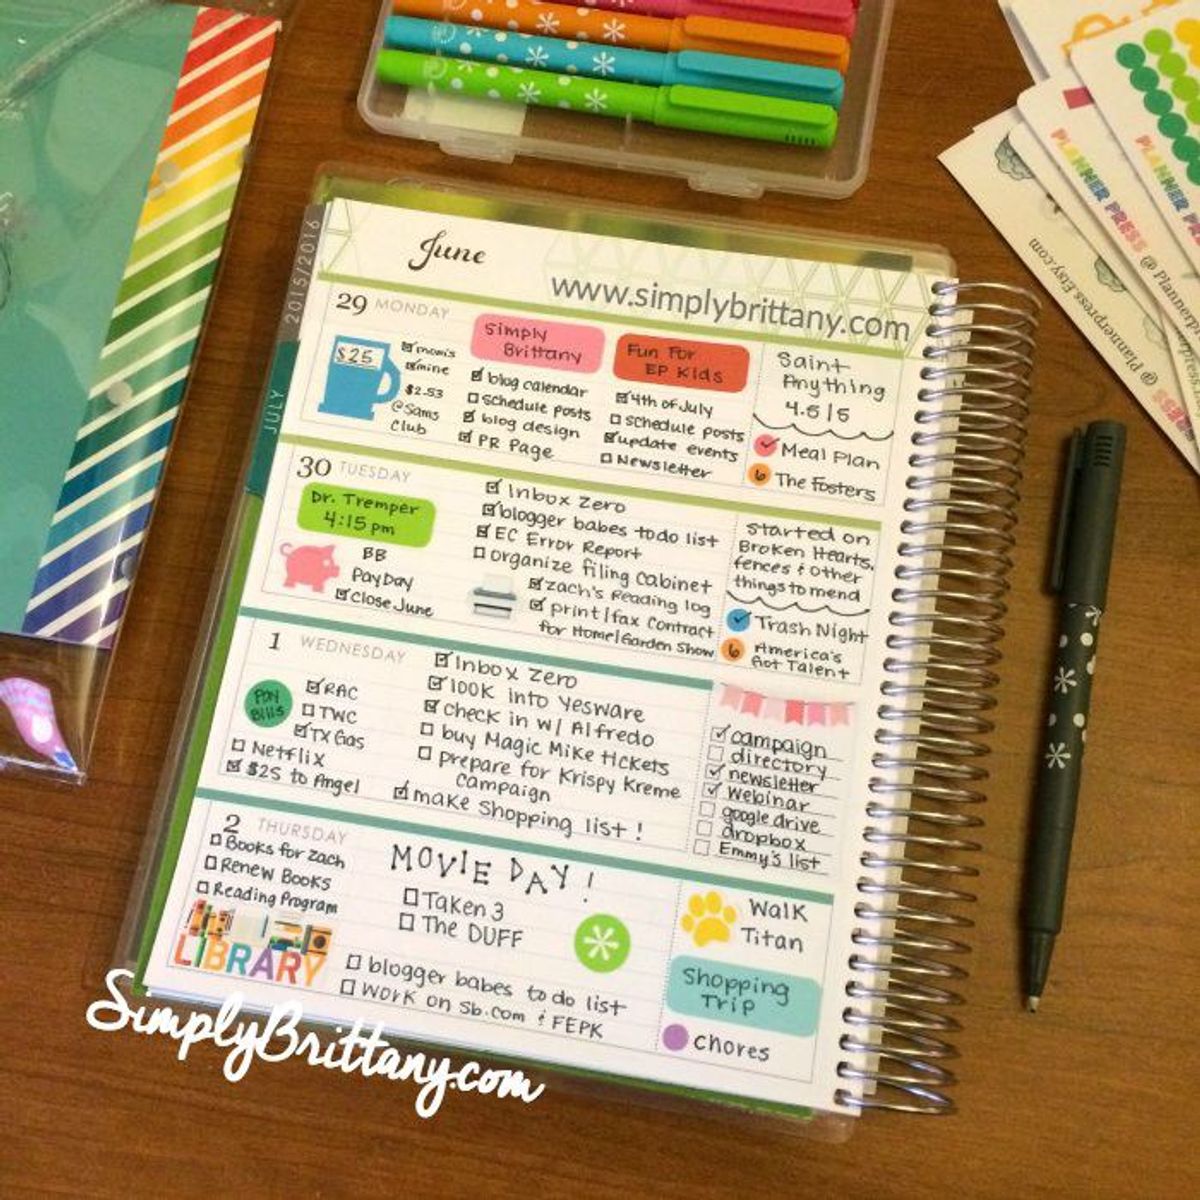 2015/2016
JULY
June
www.simplybrittany.com
29 MONDAY
$25
☑ mom's
☑ mine
$2.53
@Sams
Club
Simply
Brittany
☑ blog calendar
☐ schedule posts
☑ blog design
☑ PR Page
Fun For
EP Kids
☑ 4th of July
☐ schedule posts
☑ update events
☐ Newsletter
Saint
Anything
4.5|5
Meal Plan
6 The Fosters
30 TUESDAY
Dr. Tremper
4:15 pm
BB
Pay Day
☑ Close June
☑ Inbox Zero
☑ blogger babes to do list
☑ EC Error Report
☐ organize filing cabinet
☑ Zach's Reading log
☑ print/fax contract
for Home/Garden Show
Started on
Broken Hearts,
fences & other
things to mend
Trash Night
6 America's
Got Talent
1 WEDNESDAY
Pay
Bills
☑ RAC
☐ TWC
☑ TX Gas
☐ Netflix
☑ $25 to Angel
☑ Inbox Zero
☑ look into Yesware
☑ check in w/ Alfredo
☐ buy Magic Mike tickets
☐ prepare for Krispy Kreme
campaign
☑ make Shopping list!
☑ campaign
☐ directory
☑ newsletter
☑ webinar
☐ google drive
☐ dropbox
☐ Emmy's list
2 THURSDAY
☐ Books for Zach
☐ Renew Books
☐ Reading Program
LIBRARY
MOVIE DAY!
☐ Taken 3
☐ The DUFF
☐ blogger babes to do list
☐ work on Sb.com & FEPK
Walk
Titan
Shopping
Trip
Chores
SimplyBrittany.com
PLANNER PRESS @
PLANNER PRESS @
Plannerpress.Etsy.com